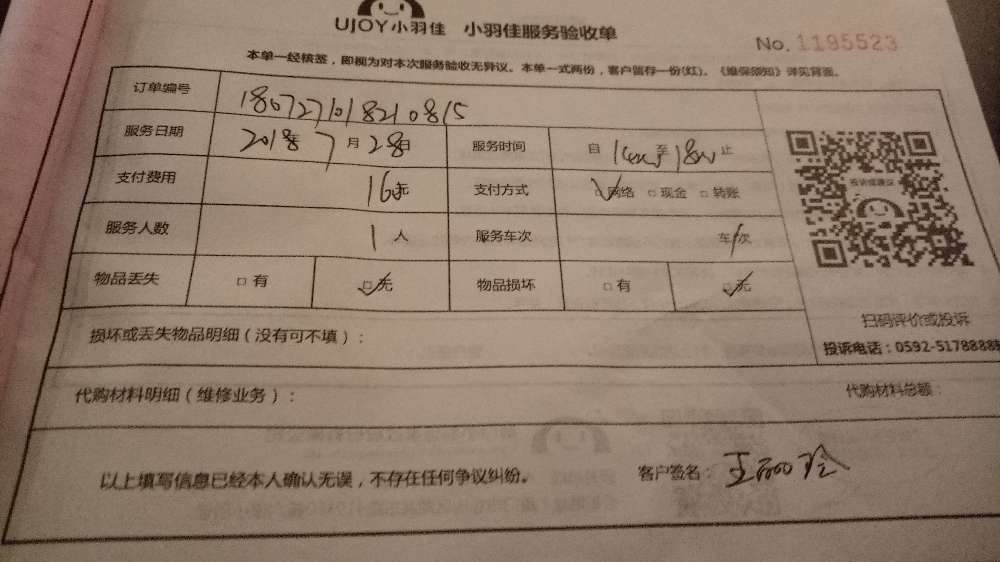 UJOY小羽佳 小羽佳服务验收单
No. 1195523
本单一经核签，即视为对本次服务验收无异议。本单一式两份，客户留存一份(红)。《维保须知》详见背面。
订单编号 1807271018210815
服务日期 2018年 7月 28日 服务时间 自 至 18 止
支付费用 160元 支付方式 ☑网络 □现金 □转账
服务人数 1人 服务车次 车/次
物品丢失 □有 ☑无 物品损坏 □有 ☑无
投诉或建议
扫码评价或投诉
投诉电话：0592-5178888
损坏或丢失物品明细（没有可不填）：
代购材料明细（维修业务）： 代购材料总额：
以上填写信息已经本人确认无误，不存在任何争议纠纷。 客户签名：王